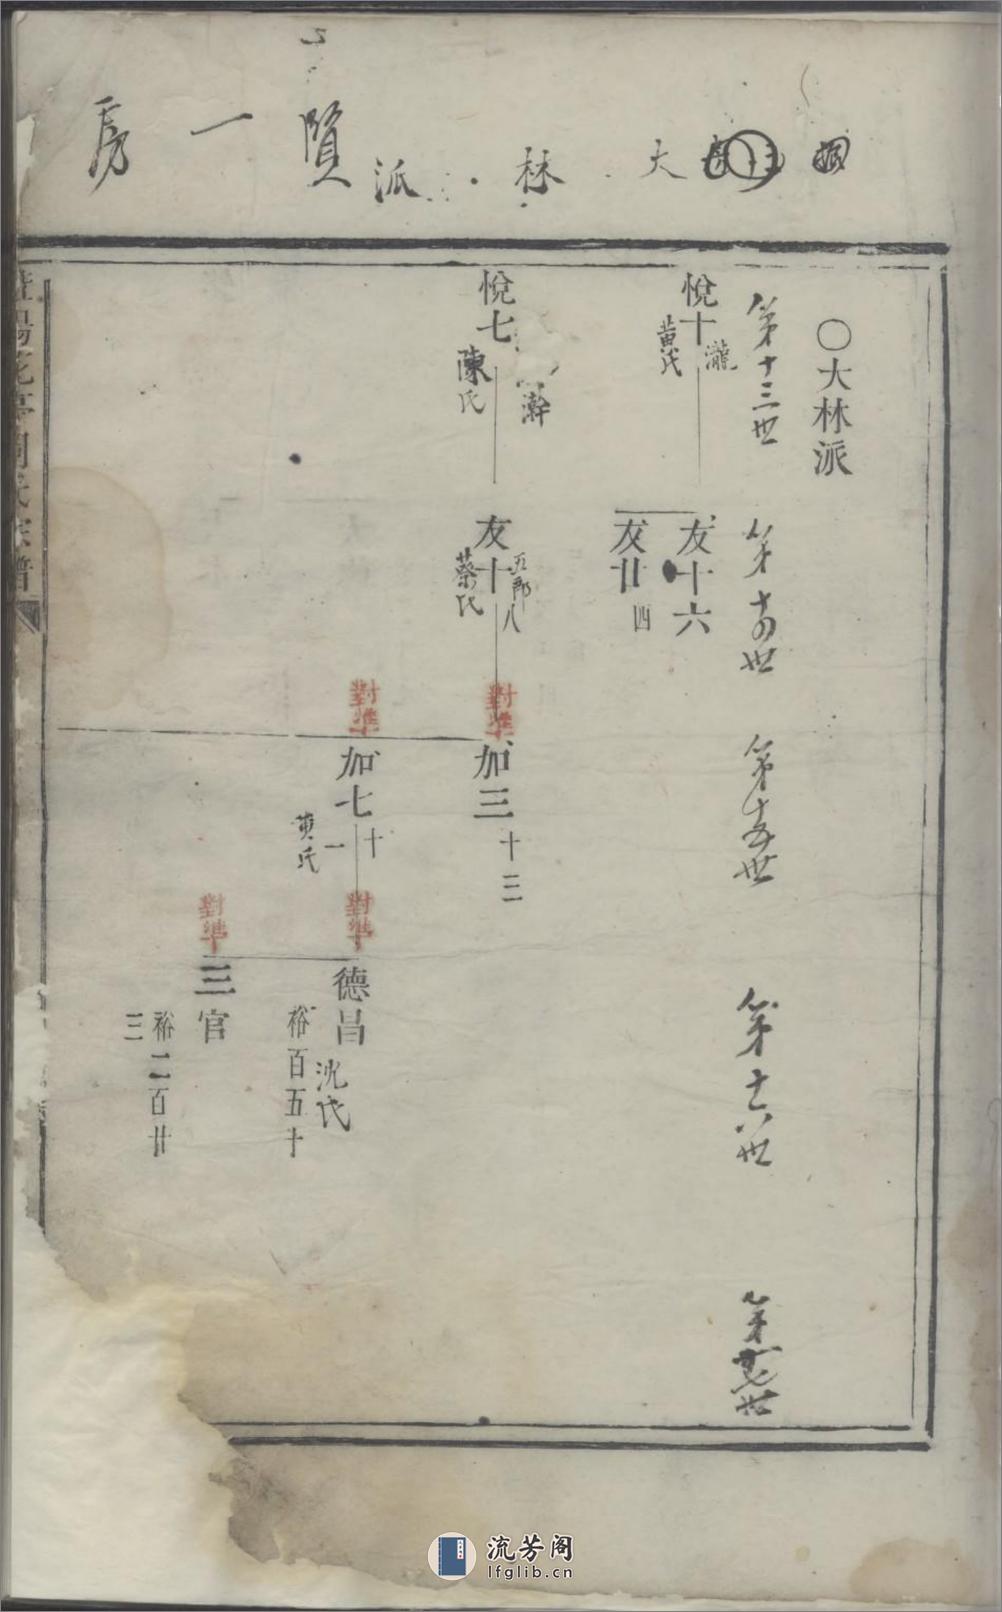 大林派
賢一房
○大林派
第十三世
第十四世
第十五世
第十六世
第十七世
悅十
瀧
黃氏
友十六
友廿
四
悅七
澣
陳氏
友十
五部八
蔡氏
對準
加三
十三
對準
加七
十一
黃氏
對準
德昌
沈氏
裕百五十
對準
三官
裕二百廿三
花亭周氏宗譜
流芳阁
lfglib.cn